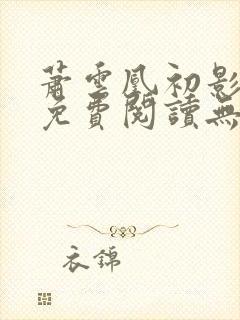 蕭雲凰初影
免費閱讀無
衣錦